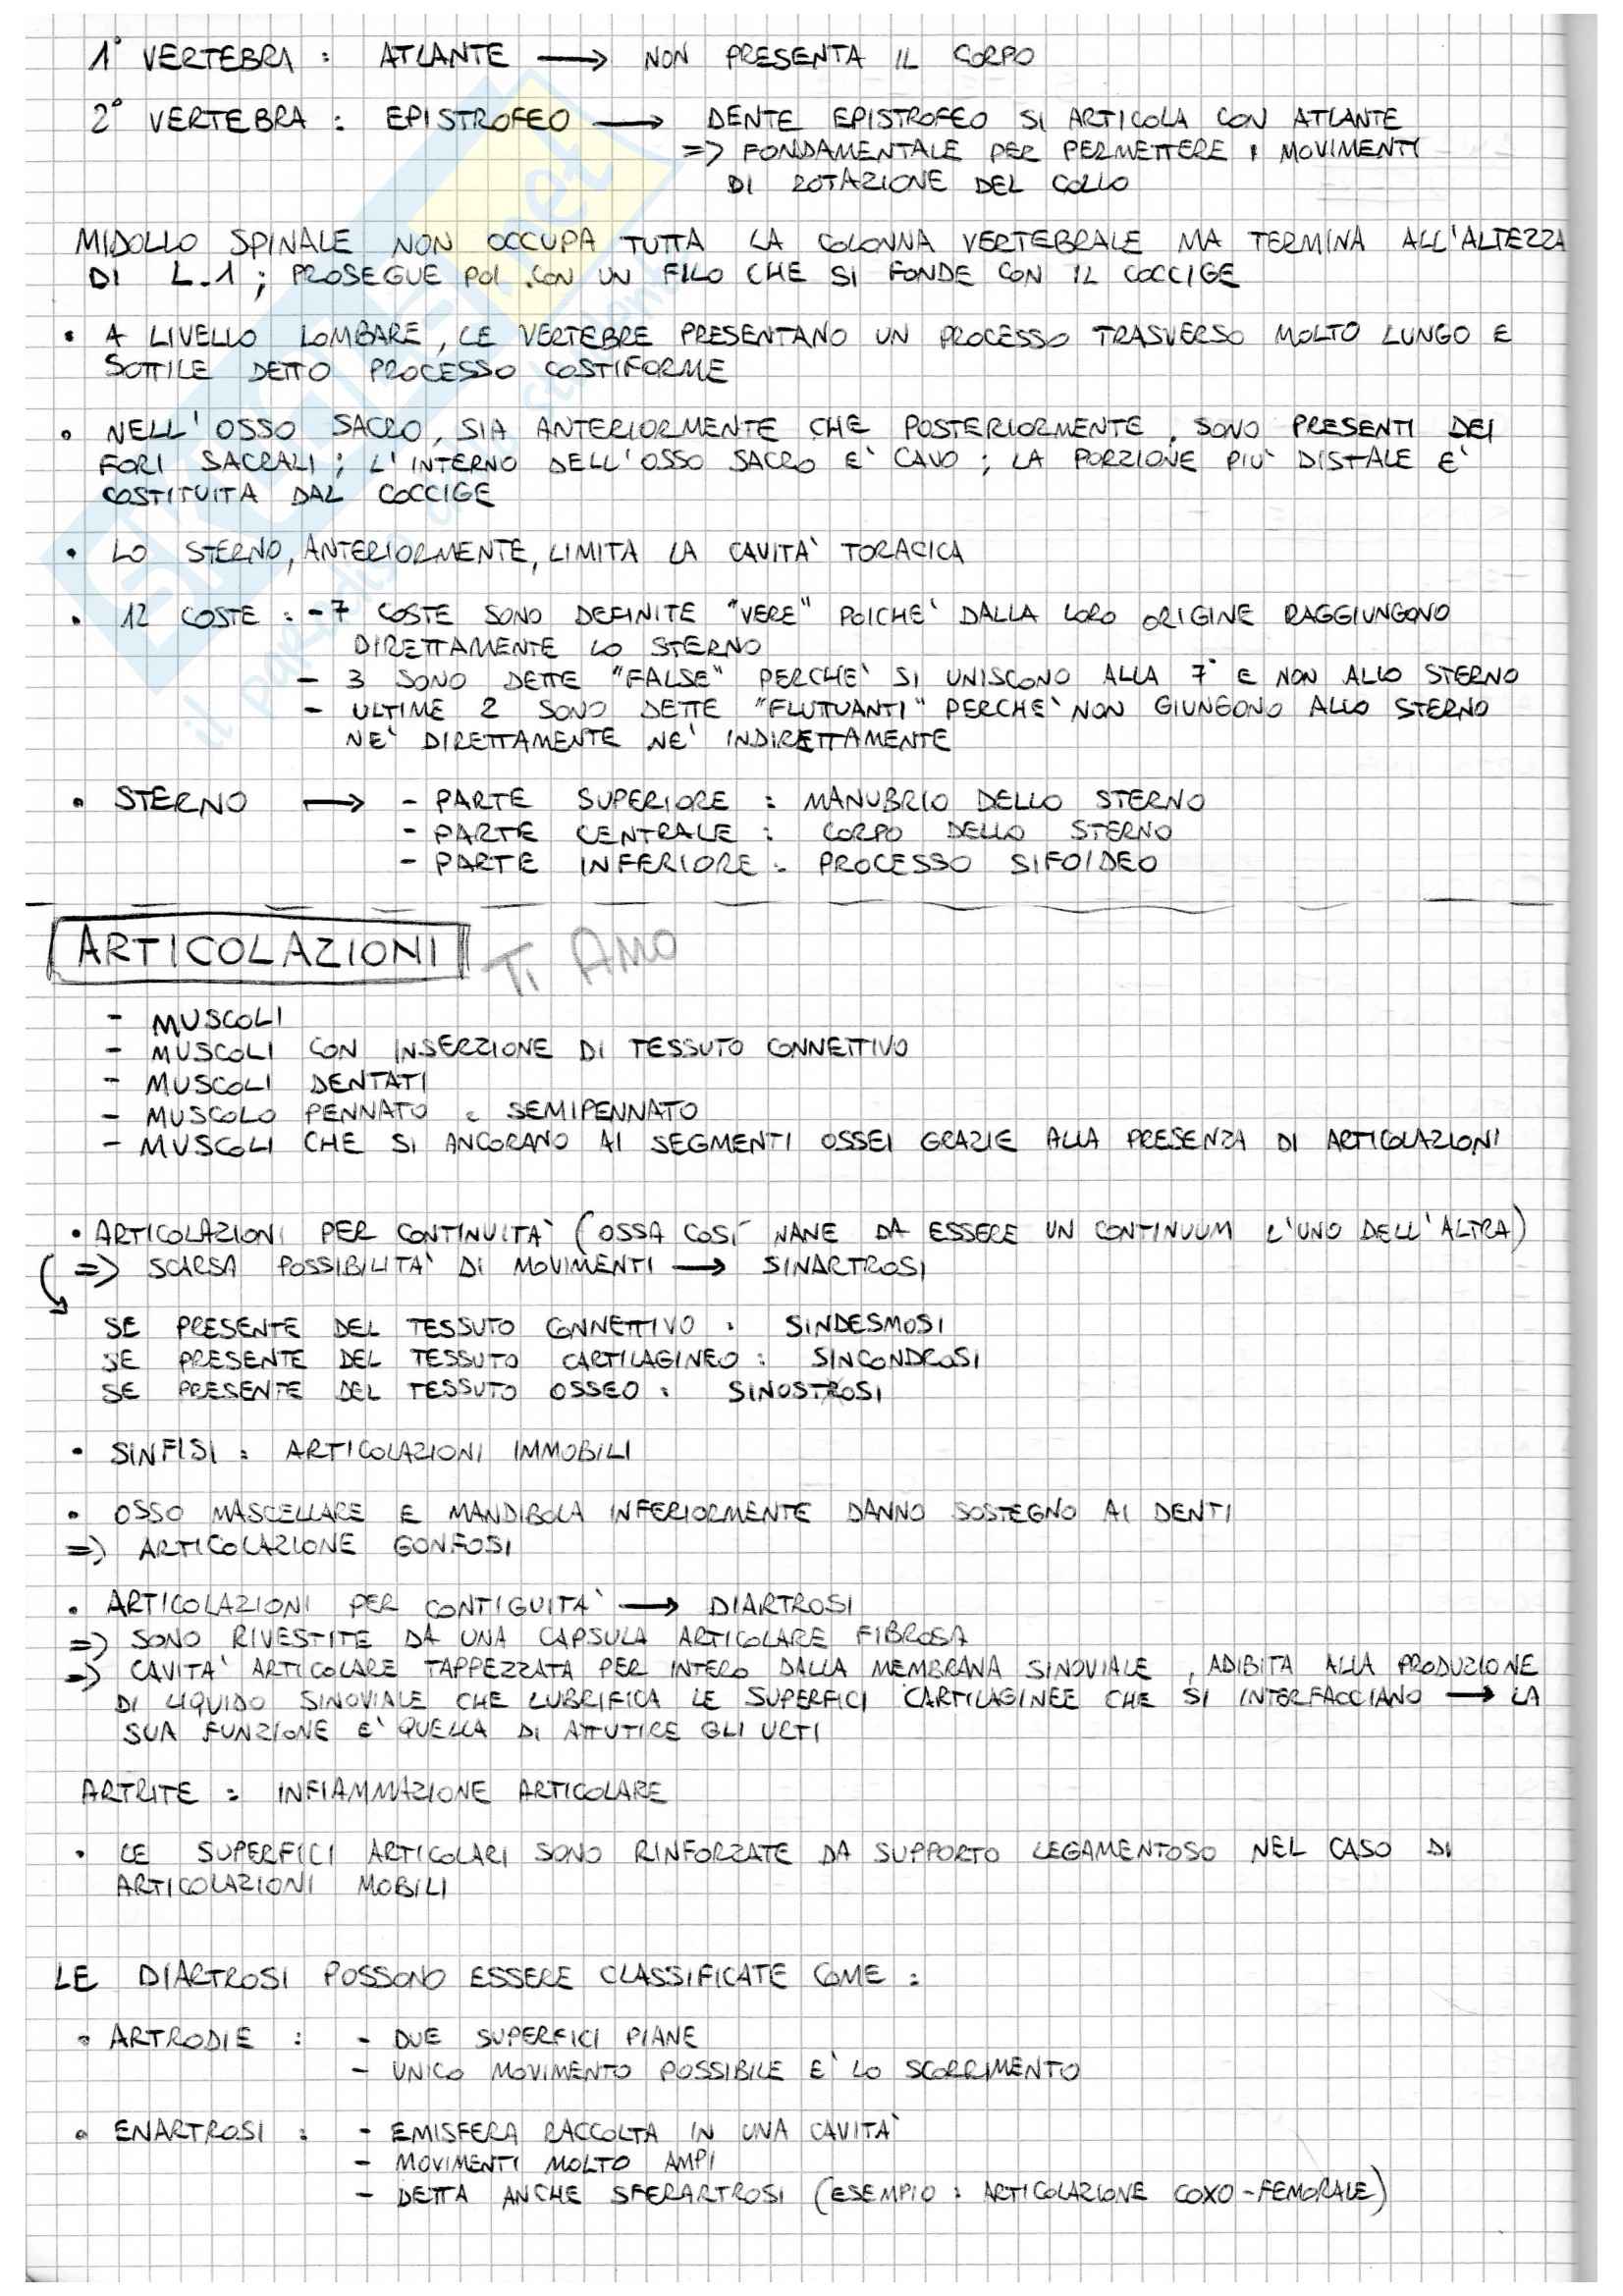 1° VERTEBRA : ATLANTE → NON PRESENTA IL CORPO
2° VERTEBRA : EPISTROFEO → DENTE EPISTROFEO SI ARTICOLA CON ATLANTE
=> FONDAMENTALE PER PERMETTERE I MOVIMENTI
DI ROTAZIONE DEL COLLO
MIDOLLO SPINALE NON OCCUPA TUTTA LA COLONNA VERTEBRALE MA TERMINA ALL'ALTEZZA
DI L.1 ; PROSEGUE POI CON UN FILO CHE SI FONDE CON IL COCCIGE
• A LIVELLO LOMBARE, LE VERTEBRE PRESENTANO UN PROCESSO TRASVERSO MOLTO LUNGO E
SOTTILE DETTO PROCESSO COSTIFORME
• NELL'OSSO SACRO, SIA ANTERIORMENTE CHE POSTERIORMENTE, SONO PRESENTI DEI
FORI SACRALI ; L'INTERNO DELL'OSSO SACRO E' CAVO ; LA PORZIONE PIU' DISTALE E'
COSTITUITA DAL COCCIGE
• LO STERNO, ANTERIORMENTE, LIMITA LA CAVITA' TORACICA
• 12 COSTE : - 7 COSTE SONO DEFINITE "VERE" POICHE' DALLA LORO ORIGINE RAGGIUNGONO
DIRETTAMENTE LO STERNO
- 3 SONO DETTE "FALSE" PERCHE' SI UNISCONO ALLA 7° E NON ALLO STERNO
- ULTIME 2 SONO DETTE "FLUTTUANTI" PERCHE' NON GIUNGONO ALLO STERNO
NE' DIRETTAMENTE NE' INDIRETTAMENTE
• STERNO → - PARTE SUPERIORE : MANUBRIO DELLO STERNO
- PARTE CENTRALE : CORPO DELLO STERNO
- PARTE INFERIORE : PROCESSO SIFOIDEO
ARTICOLAZIONI TI AMO
- MUSCOLI
- MUSCOLI CON INSERZIONE DI TESSUTO CONNETTIVO
- MUSCOLI DENTATI
- MUSCOLO PENNATO E SEMIPENNATO
- MUSCOLI CHE SI ANCORANO AI SEGMENTI OSSEI GRAZIE ALLA PRESENZA DI ARTICOLAZIONI
• ARTICOLAZIONI PER CONTINUITA' (OSSA COSI' NANE DA ESSERE UN CONTINUUM L'UNO DELL'ALTRA)
=> SCARSA POSSIBILITA' DI MOVIMENTI → SINARTROSI
SE PRESENTE DEL TESSUTO CONNETTIVO : SINDESMOSI
SE PRESENTE DEL TESSUTO CARTILAGINEO : SINCONDROSI
SE PRESENTE DEL TESSUTO OSSEO : SINOSTROSI
• SINFISI : ARTICOLAZIONI IMMOBILI
• OSSO MASCELLARE E MANDIBOLA INFERIORMENTE DANNO SOSTEGNO AI DENTI
=> ARTICOLAZIONE GONFOSI
• ARTICOLAZIONI PER CONTIGUITA' → DIARTROSI
=> SONO RIVESTITE DA UNA CAPSULA ARTICOLARE FIBROSA
=> CAVITA' ARTICOLARE TAPPEZZATA PER INTERO DALLA MEMBRANA SINOVIALE, ADIBITA ALLA PRODUZIONE
DI LIQUIDO SINOVIALE CHE LUBRIFICA LE SUPERFICI CARTILAGINEE CHE SI INTERFACCIANO → LA
SUA FUNZIONE E' QUELLA DI ATTUTIRE GLI URTI
ARTRITE : INFIAMMAZIONE ARTICOLARE
• LE SUPERFICI ARTICOLARI SONO RINFORZATE DA SUPPORTO LEGAMENTOSO NEL CASO DI
ARTICOLAZIONI MOBILI
LE DIARTROSI POSSONO ESSERE CLASSIFICATE COME :
• ARTRODIE : - DUE SUPERFICI PIANE
- UNICO MOVIMENTO POSSIBILE E' LO SCORRIMENTO
• ENARTROSI : - EMISFERA RACCOLTA IN UNA CAVITA'
- MOVIMENTI MOLTO AMPI
- DETTA ANCHE SFERARTROSI (ESEMPIO : ARTICOLAZIONE COXO-FEMORALE)